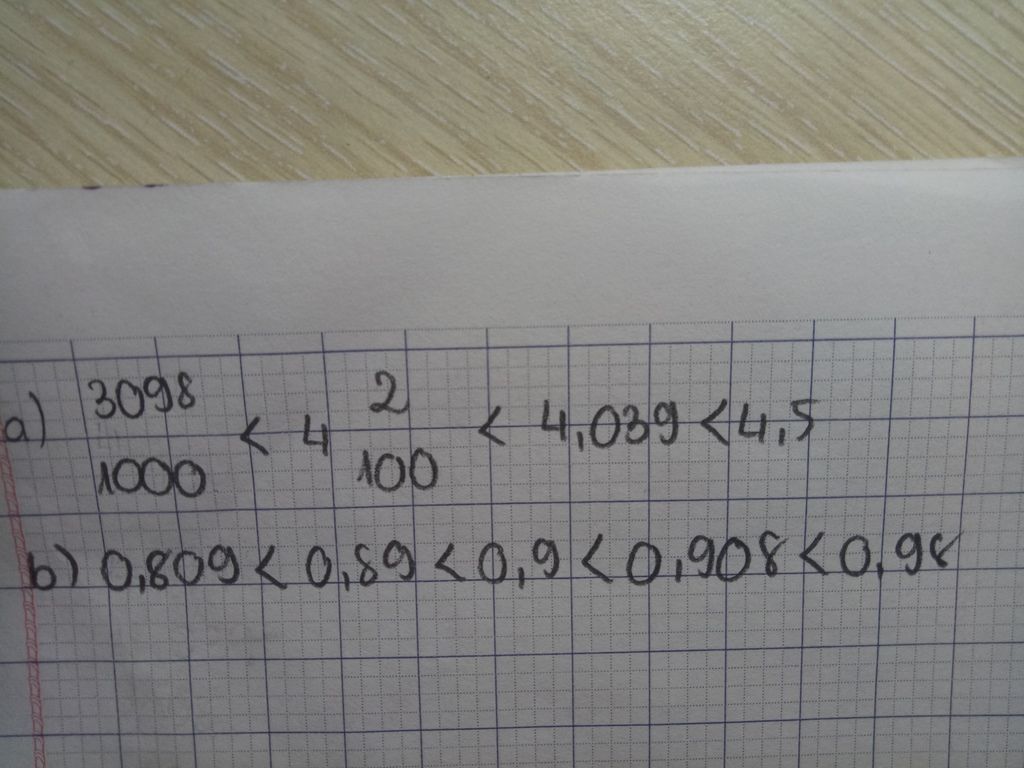 a) 3098/1000 < 4 2/100 < 4,039 < 4,5
b) 0,809 < 0,89 < 0,9 < 0,908 < 0,98